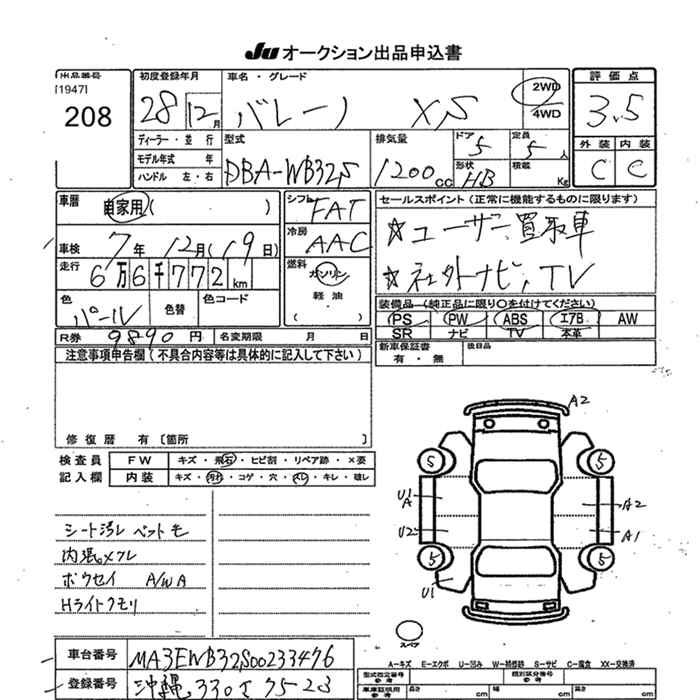 JU オークション出品申込書
出品番号 初度登録年月 車名・グレード 評価点
[1947]
208 28年12月 バレーノ XS 2WD 4WD 3.5
ディーラー・並行 型式 排気量 ドア 定員 外装 内装
モデル年式 年 DBA-WB32S 1200cc 5 5人 C C
ハンドル 左・右 形状 HB 積載 Kg
車歴 自家用 ( ) シフト FAT セールスポイント (正常に機能するものに限ります)
車検 7年 12月 (19日) 冷房 AAC ☆ユーザー買取車
走行 6万6千772km 燃料 ガソリン ☆社外ナビ、TV
軽油・ ( )
色 パール 色替 色コード 装備品 (純正品に限り○を付けてください)
PS PW ABS エアB AW
SR ナビ TV 本革
R券 9890円 名変期限 月 日 新車保証書 有・無 後日品
注意事項申告欄 (不具合内容等は具体的に記入して下さい)
修復歴 有 〔箇所 〕
検査員 記入欄 FW キズ・飛石・ヒビ割・リペア跡・×要
内装 キズ・汚れ・コゲ・穴・スレ・キレ・破レ
シート汚レ ペットモ
内張メクレ
ボウセイ A/W A
Hライトクモリ
A2
5 5
U1 A A2
U2 A1
5 5
U1
スペア
車台番号 MA3EWB32S00233476
登録番号 沖縄 330 さ 75-23
A-キズ E-エクボ U-凹み W-補修跡 S-サビ C-腐食 XX-交換済
型式指定番号 参考 類別区分番号 参考
車庫証明用 参考 長さ cm 幅 cm 高さ cm